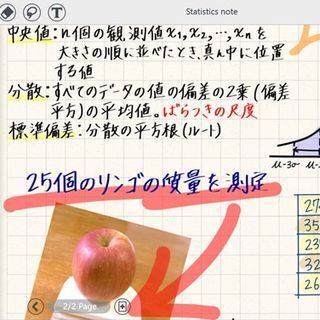 Statistics note
中央値：n個の観測値x₁,x₂,…,xₙを
大きさの順に並べたとき、真ん中に位置
する値
分散：すべてのデータの値の偏差の2乗(偏差
平方)の平均値。ばらつきの尺度
標準偏差：分散の平方根(ルート)
25個のリンゴの質量を測定
μ-3σ
μ-2
2/2 Page